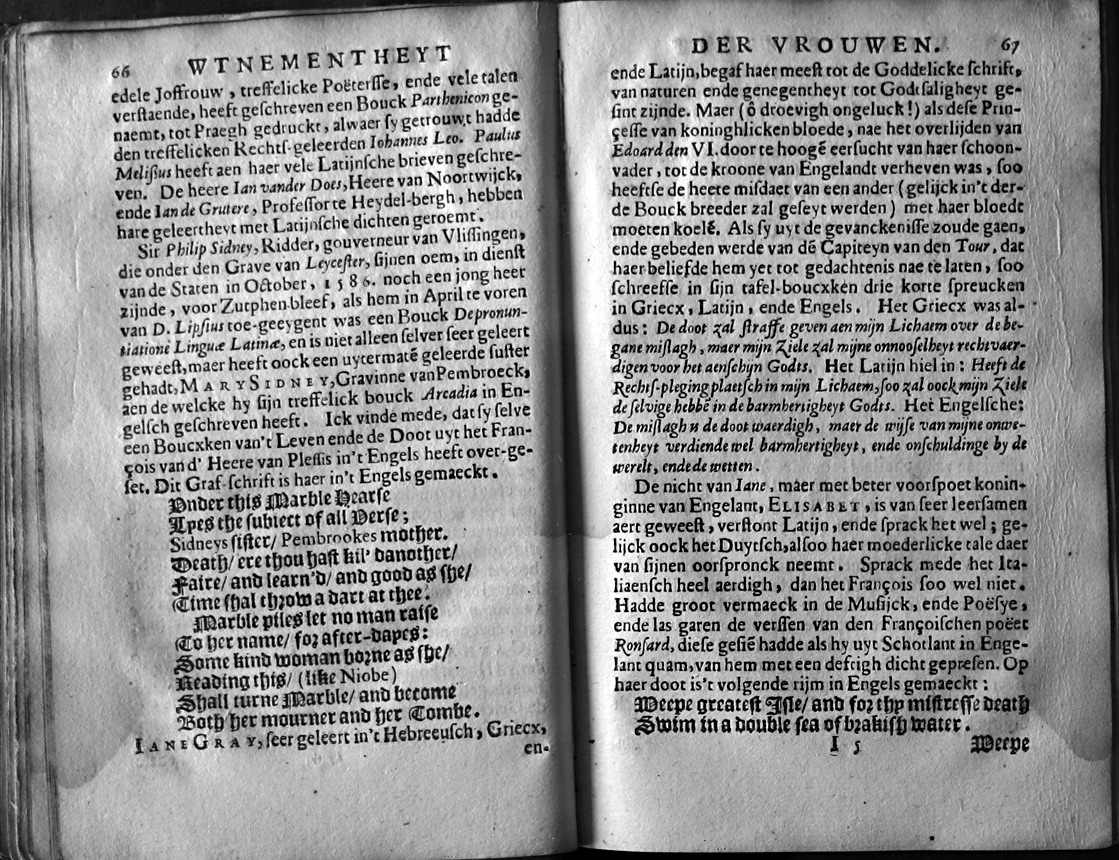 66 WTNEMENTHEYT
edele Joffrouw, treffelicke Poëterſſe, ende vele talen
verſtaende, heeft geſchreven een Bouck Parthenicon ge-
naemt, tot Praegh gedruckt, alwaer ſy getrouwt hadde
den treffelicken Rechtſ-geleerden Iohannes Leo. Paulus
Meliſsius heeft aen haer vele Latijnſche brieven geſchre-
ven. De heere Ian vander Does, Heere van Noortwijck,
ende Ian de Grutere, Profeſſor te Heydel-bergh, hebben
hare geleertheyt met Latijnſche dichten geroemt.
Sir Philip Sidney, Ridder, gouverneur van Vliſſingen,
die onder den Grave van Leyceſter, ſijnen oem, in dienſt
van de Staten in October, 1586. noch een jong heer
zijnde, voor Zutphen bleef, als hem in April te voren
van D. Lipſius toe-geeygent was een Bouck De pronun-
tiatione Linguæ Latinæ, en is niet alleen ſelver ſeer geleert
geweeſt, maer heeft oock een uytermatē geleerde ſuſter
gehadt, MARY SIDNEY, Gravinne van Pembroeck,
aen de welcke hy ſijn treffelick bouck Arcadia in En-
gelſch geſchreven heeft. Ick vinde mede, dat ſy ſelve
een Boucxken van't Leven ende de Doot uyt het Fran-
çois van d' Heere van Pleſſis in't Engels heeft over-ge-
ſet. Dit Graf-ſchrift is haer in't Engels gemaeckt.
Vnder this Marble Hearſe
Lyes the ſubiect of all Verſe;
Sidneys ſiſter/ Pembrookes mother.
Death/ ere thou haſt kil'd another/
Faire/ and learn'd/ and good as ſhe/
Time ſhal throw a dart at thee.
Marble piles let no man raiſe
To her name/ for after-dayes:
Some kind woman borne as ſhe/
Reading this/ (like Niobe)
Shall turne Marble/ and become
Both her mourner and her Tombe.
IANE GRAY, ſeer geleert in't Hebreeuſch, Griecx,
en-
DER VROUWEN. 67
ende Latijn, begaf haer meeſt tot de Goddelicke ſchrift,
van naturen ende genegentheyt tot Godtſaligheyt ge-
ſint zijnde. Maer (ô droevigh ongeluck!) als deſe Prin-
çeſſe van koninghlicken bloede, nae het overlijden van
Edoard den VI. door te hoogē eerſucht van haer ſchoon-
vader, tot de kroone van Engelandt verheven was, ſoo
heeftſe de heete miſdaet van een ander (gelijck in't der-
de Bouck breeder zal geſeyt werden) met haer bloedt
moeten koelē. Als ſy uyt de gevanckeniſſe zoude gaen,
ende gebeden werde van dē Capiteyn van den Tour, dat
haer beliefde hem yet tot gedachtenis nae te laten, ſoo
ſchreefſe in ſijn tafel-boucxken drie korte ſpreucken
in Griecx, Latijn, ende Engels. Het Griecx was al-
dus: De doot zal ſtraffe geven aen mijn Lichaem over de be-
gane miſlagh, maer mijn Ziele zal mijne onnooſelheyt rechtvaer-
digen voor het aenſchijn Godts. Het Latijn hiel in: Heeft de
Rechtſ-pleging plaetſch in mijn Lichaem, ſoo zal oock mijn Ziele
de ſelvige hebbē in de barmhertigheyt Godts. Het Engelſche:
De miſlagh is de doot waerdigh, maer de wijſe van mijne onwe-
tenheyt verdiende wel barmhertigheyt, ende onſchuldinge by de
werelt, ende de wetten.
De nicht van Iane, maer met beter voorſpoet konin-
ginne van Engelant, ELISABET, is van ſeer leerſamen
aert geweeſt, verſtont Latijn, ende ſprack het wel; ge-
lijck oock het Duytſch, alſoo haer moederlicke tale daer
van ſijnen oorſpronck neemt. Sprack mede het Ita-
liaenſch heel aerdigh, dan het François ſoo wel niet.
Hadde groot vermaeck in de Muſijck, ende Poëſye,
ende las garen de verſſen van den Françoiſchen poëet
Ronſard, dieſe geſiē hadde als hy uyt Schotlant in Enge-
lant quam, van hem met een deftigh dicht gepreſen. Op
haer doot is't volgende rijm in Engels gemaeckt:
Weepe greateſt Iſle/ and for thy miſtreſſe death
Swim in a double ſea of brakiſh water.
I 5 Weepe